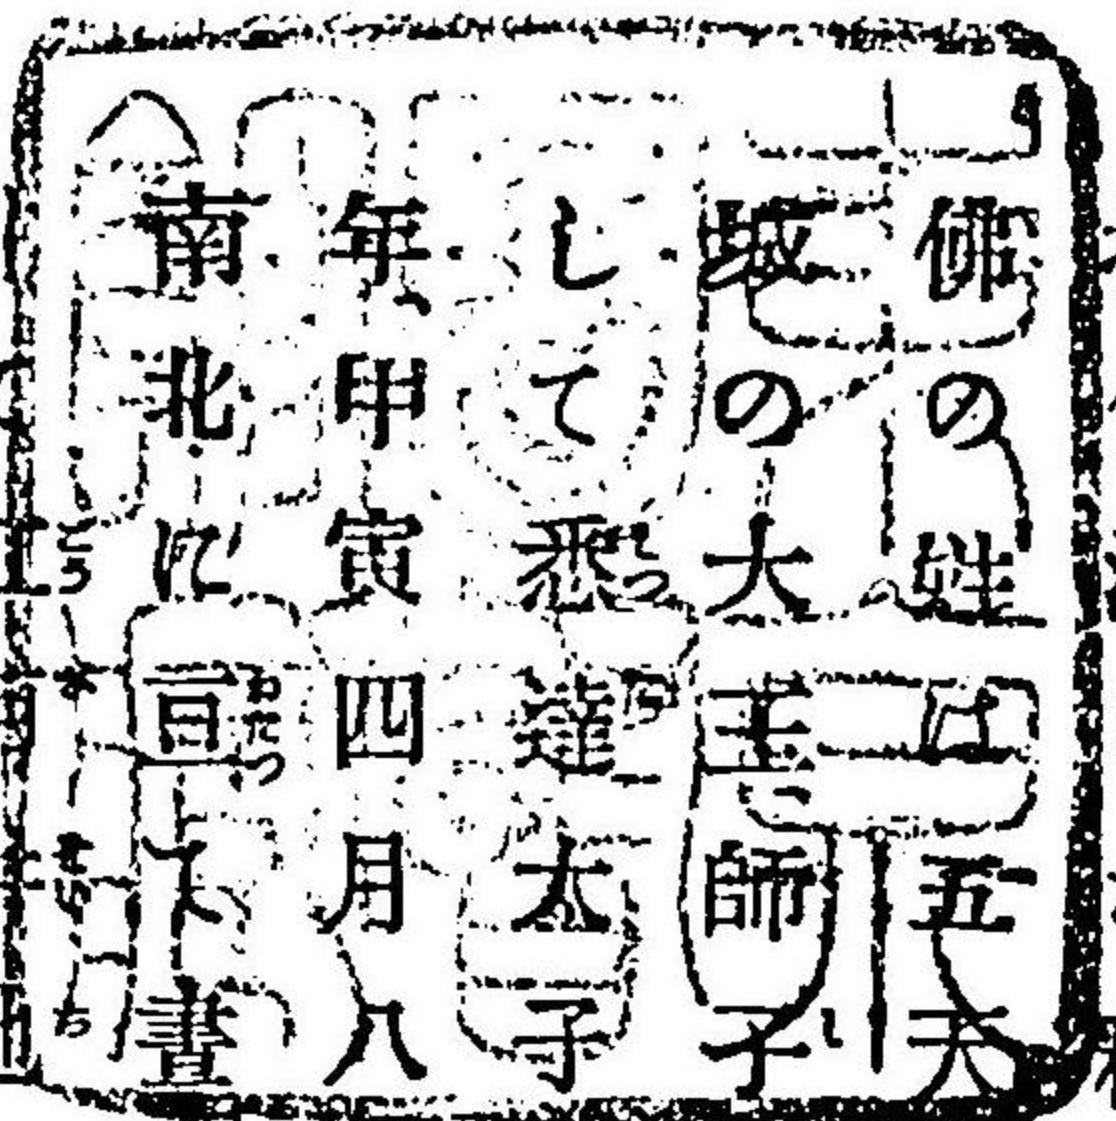 佛の姓は五天
城の大王師子
して悉達太子
年甲寅四月八
南北に亘りて晝